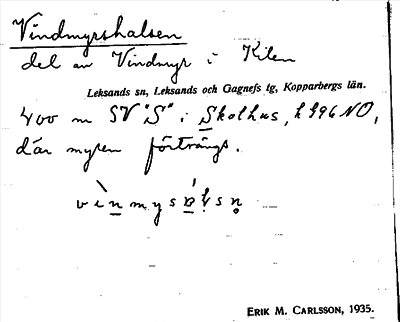 Vindmyrshalsen
del av Vindmyr i Kilen
Leksands sn, Leksands och Gagnefs tg, Kopparbergs län.
400 m SV "S" i Skolhus, h 496 NO,
där myren förträngs.
vìnmysalsn
ERIK M. CARLSSON, 1935.